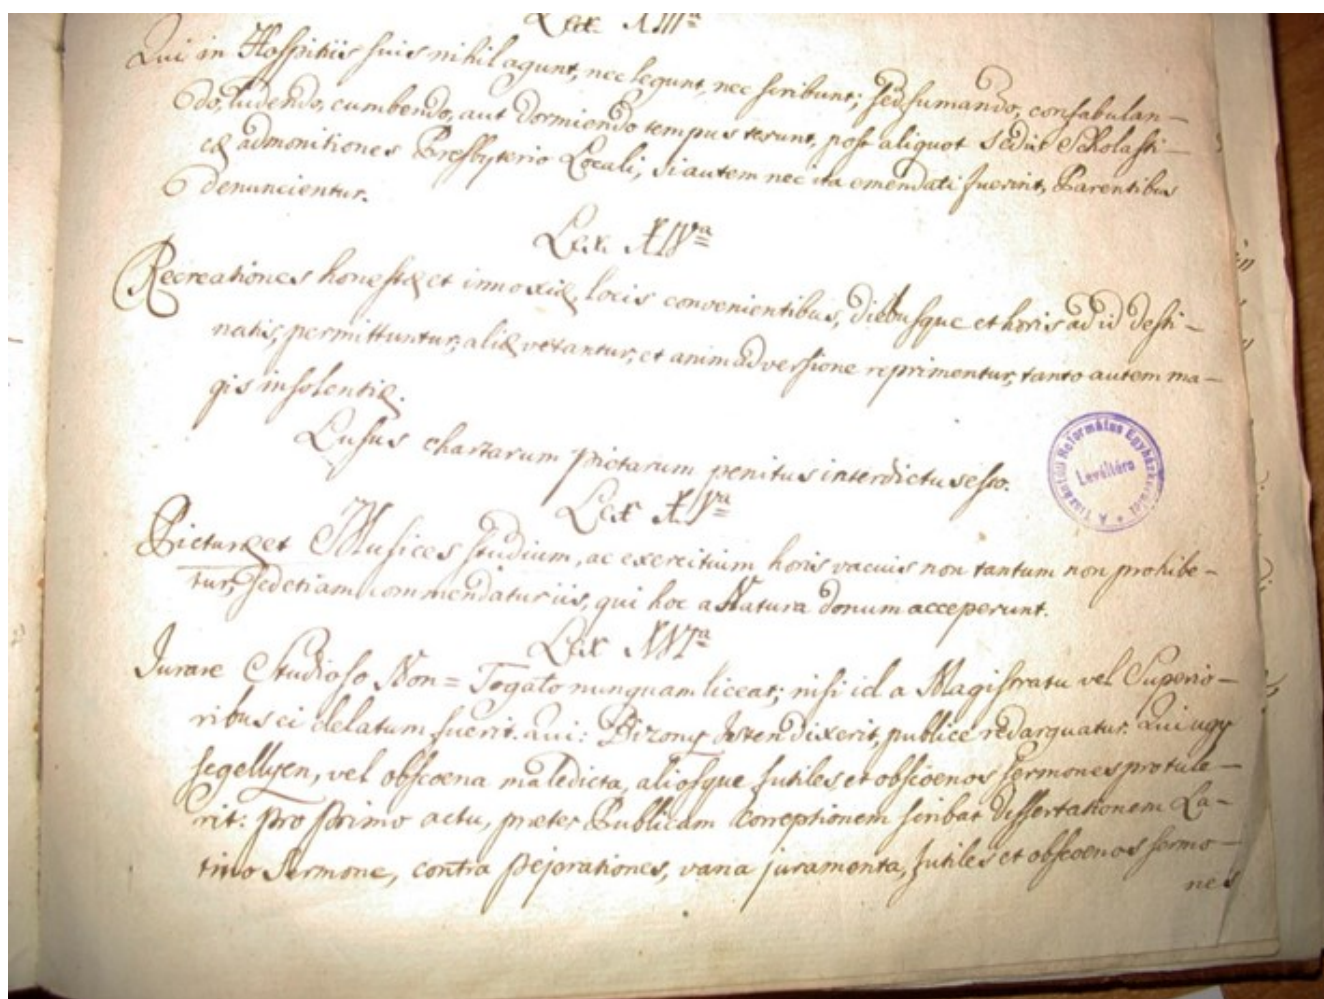 Lex. XIIIa
Qui in Hospitiis suis nihil agunt, nec legunt, nec scribunt; sed fumando, confabulan-
do, ludendo, cumbendo, aut dormiendo tempus terunt, post aliquot Sedis Scholasti-
cæ admonitiones Presbyterio Locali, si autem nec ita emendati fuerint, Parentibus
denuncientur.
Lex. XIVa
Recreationes honestæ et innoxiæ, locis convenientibus, diebusque et horis ad id desti-
natis, permittuntur, aliæ vetantur, et animadversione reprimentur, tanto autem ma-
gis insolentiæ.
Lusus chartarum pictarum penitus interdictus esto.
Lex XVa
Picturæ et Musices studium, ac exercitium horis vacuis non tantum non prohibe-
tur, sed etiam commendatur iis, qui hoc a Natura donum acceperunt.
Lex XVIa
Jurare Studioso Non=Togato nunquam liceat; nisi id a Magistratu vel Superio-
ribus ei delatum fuerit. Qui: Bizony Isten dixerit, publice redarguatur. Qui ugy
segellyen, vel obscoena maledicta, aliosque futiles et obscoenos sermones protule-
rit: pro primo actu, præter Publicam correptionem scribat Dissertationem La-
tino Sermone, contra pejorationes, varia juramenta, futiles et obscoenos sermo-
nes
A Tiszántúli Református Egyházkerület
Levéltára